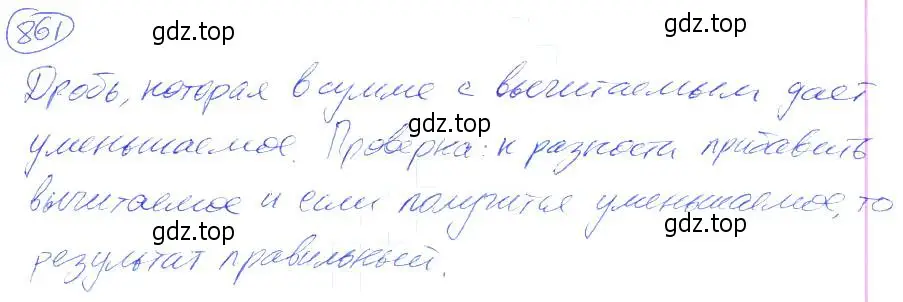 861
gdz.top gdz.top
Дробь, которая в сумме с вычитаемым дает
gdz.top
уменьшаемое. Проверка: к разности прибавить
вычитаемое и если получится уменьшаемое, то
gdz.top gdz.top
результат правильный.